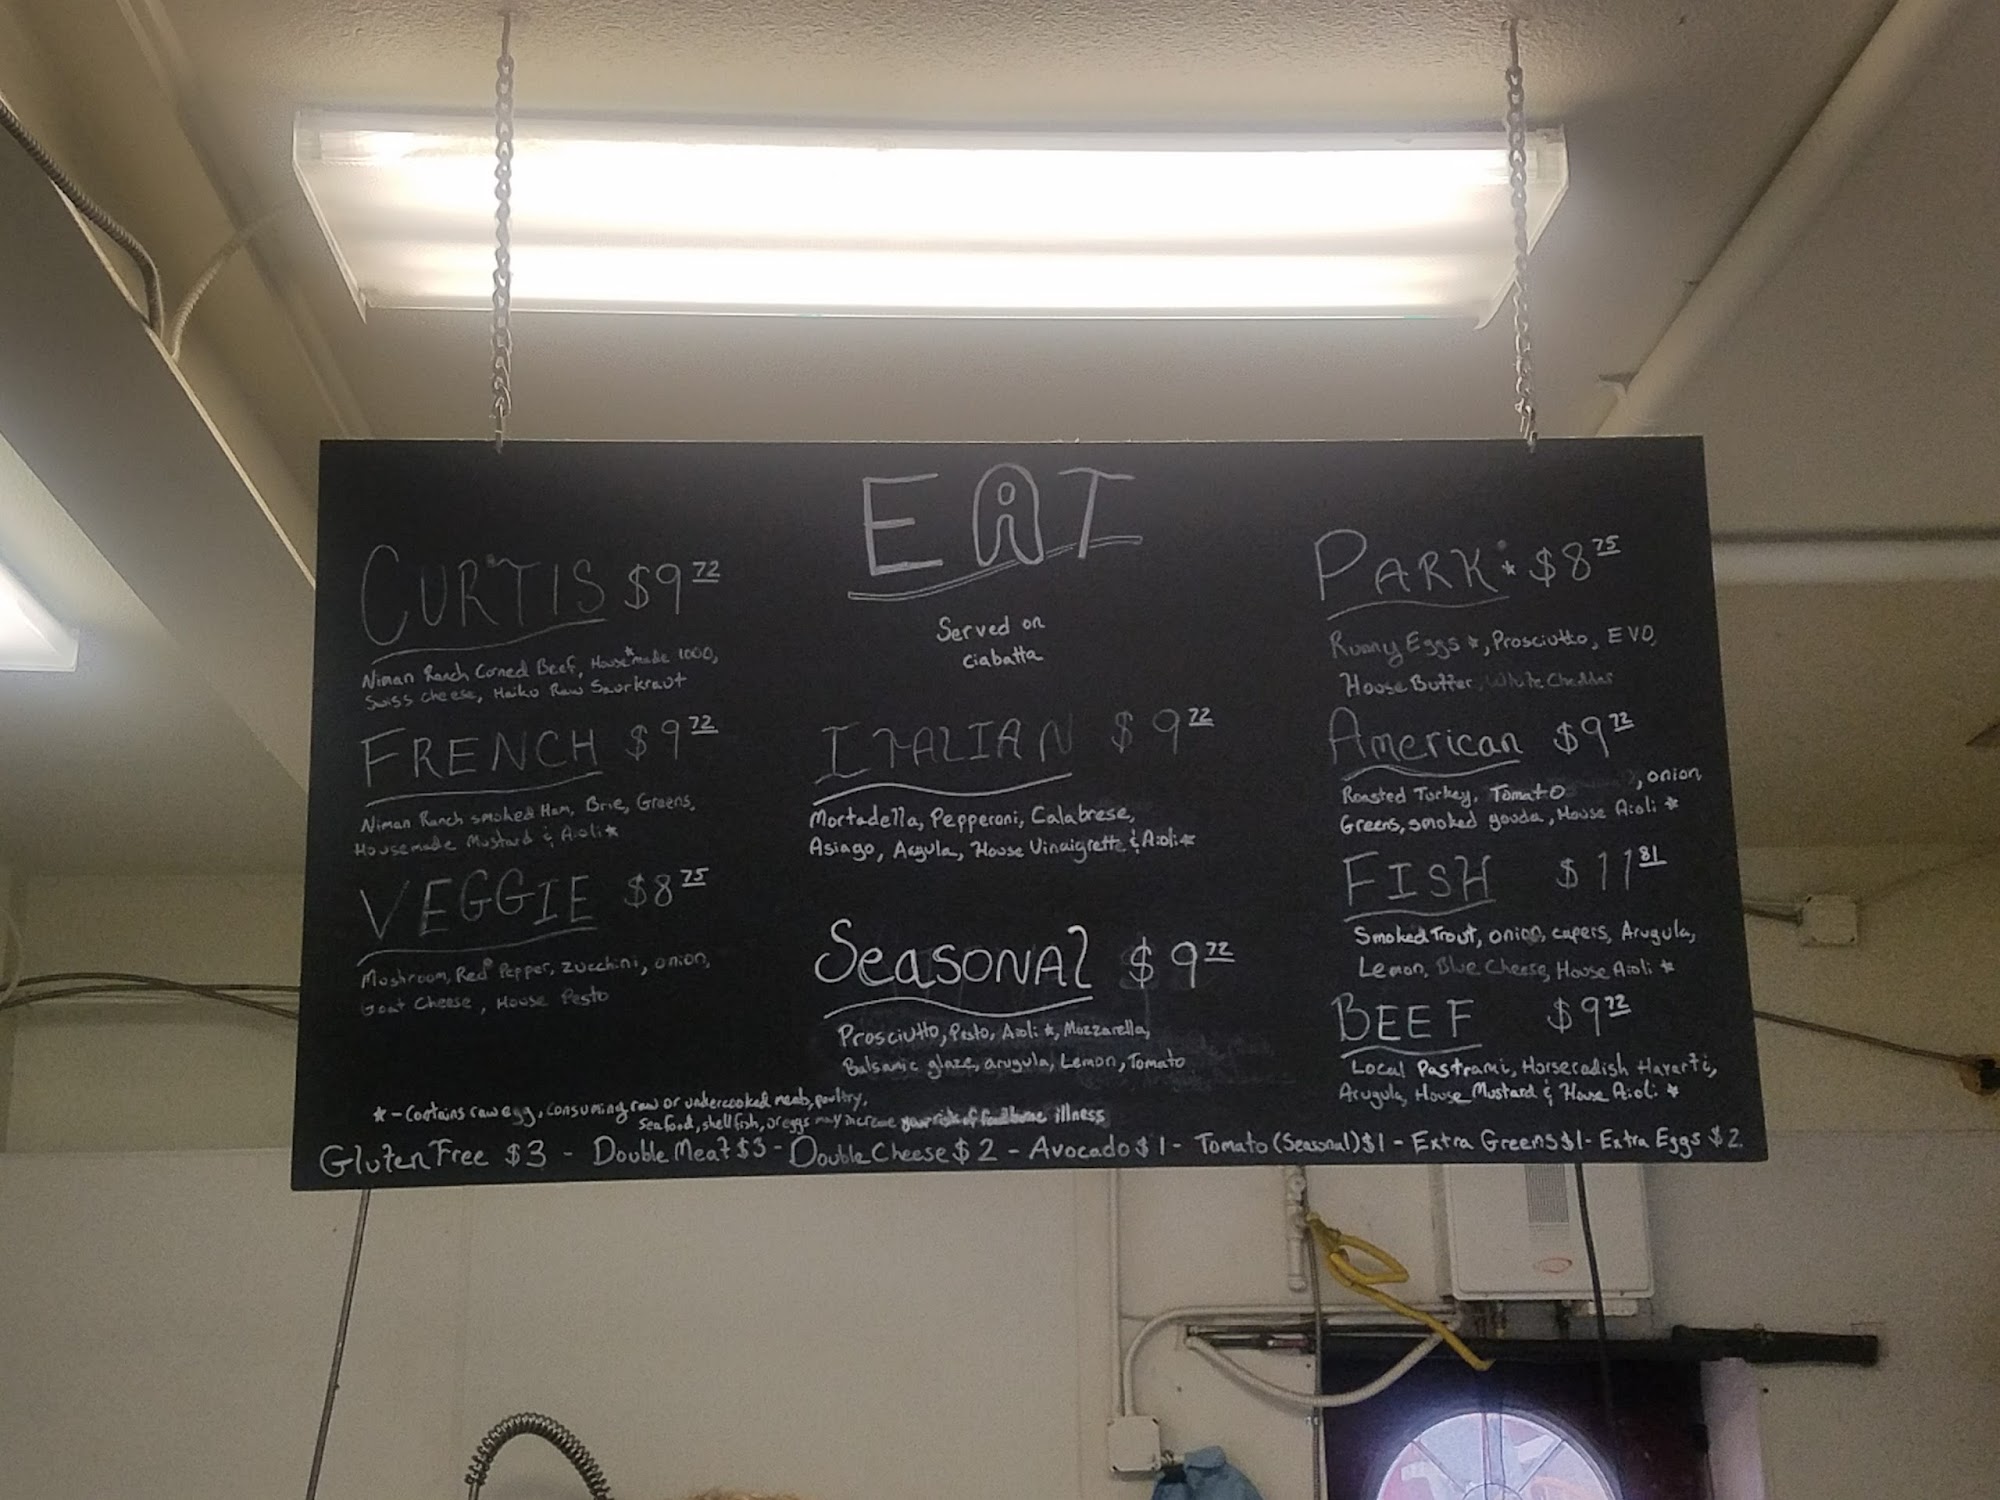 EAT
Served on
ciabatta
CURTIS $9 72
Niman Ranch Corned Beef, House*made 1000,
Swiss cheese, Haiku Raw Saurkraut
FRENCH $9 72
Niman Ranch smoked Ham, Brie, Greens,
Housemade Mustard & Aioli *
VEGGIE $8 75
Mushroom, Red Pepper, zucchini, onion,
Goat Cheese, House Pesto
ITALIAN $9 72
Mortadella, Pepperoni, Calabrese,
Asiago, House Vinaigrette & Aioli *
SEASONAL $9 72
Prosciutto, Pesto, Aioli *, Mozzarella,
Balsamic glaze, arugula, Lemon, Tomato
PARK * $8 75
Runny Eggs *, Prosciutto, EVO,
House Butter, White Cheddar
American $9 72
Roasted Turkey, Tomato, onion,
Greens, smoked gouda, House Aioli *
FISH $11 81
Smoked Trout, onion, capers, Arugula,
Lemon, Blue Cheese, House Aioli *
BEEF $9 72
Local Pastrami, Horseradish Havarti,
Arugula, House Mustard & House Aioli *
* - Contains raw egg, consuming raw or undercooked meats, poultry,
seafood, shellfish, or eggs may increase your risk of foodborne illness
Gluten Free $3 - Double Meat $3 - Double Cheese $2 - Avocado $1 - Tomato (Seasonal) $1 - Extra Greens $1 - Extra Eggs $2